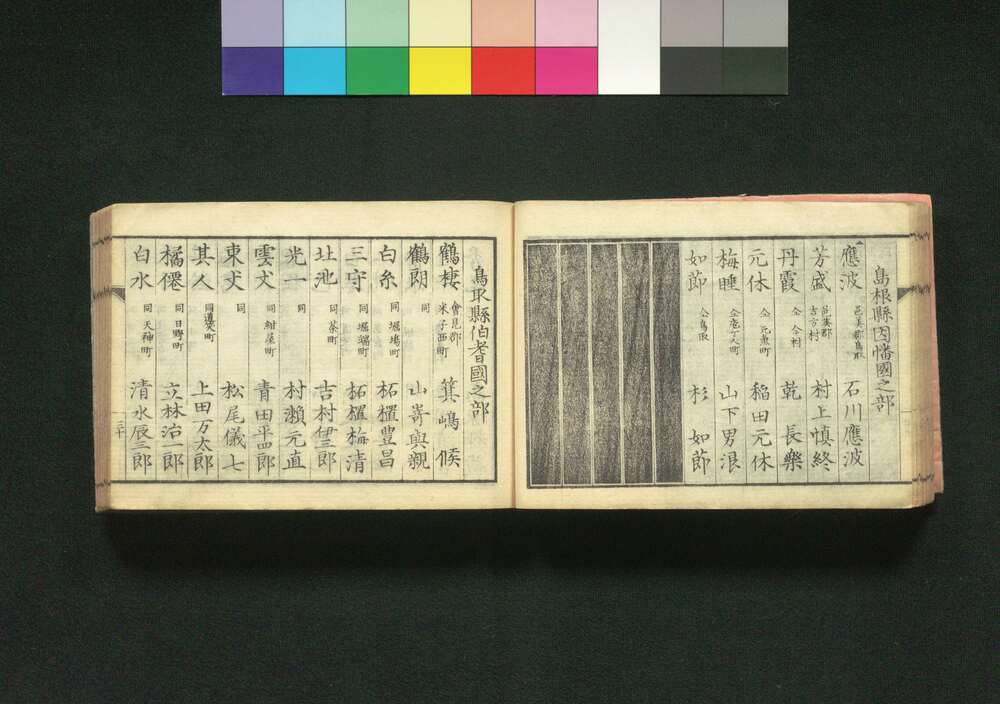 島根縣因幡國之部
應波 邑美郡鳥取 石川應波
芳盛 邑美郡古方村 村上慎終
丹霞 仝今村 乾長樂
元休 仝元魚町 稲田元休
梅睡 仝庖丁人町 山下男浪
如節 仝鳥取 杉如節
鳥取縣伯耆國之部
鶴棲 會見郡米子西町 箕嶋候
鶴朗 同 山嵜與親
白糸 同堀塲町 柘櫃豊昌
三守 同堀端町 柘櫃梅清
北池 同茶町 吉村伊三郎
光一 同 村瀬元直
雲丈 同紺屋町 青田平四郎
東丈 同 松尾儀七
其人 同 上田万太郎
橘僊 同日野町 立林治一郎
白水 同天神町 清水辰三郎
三十